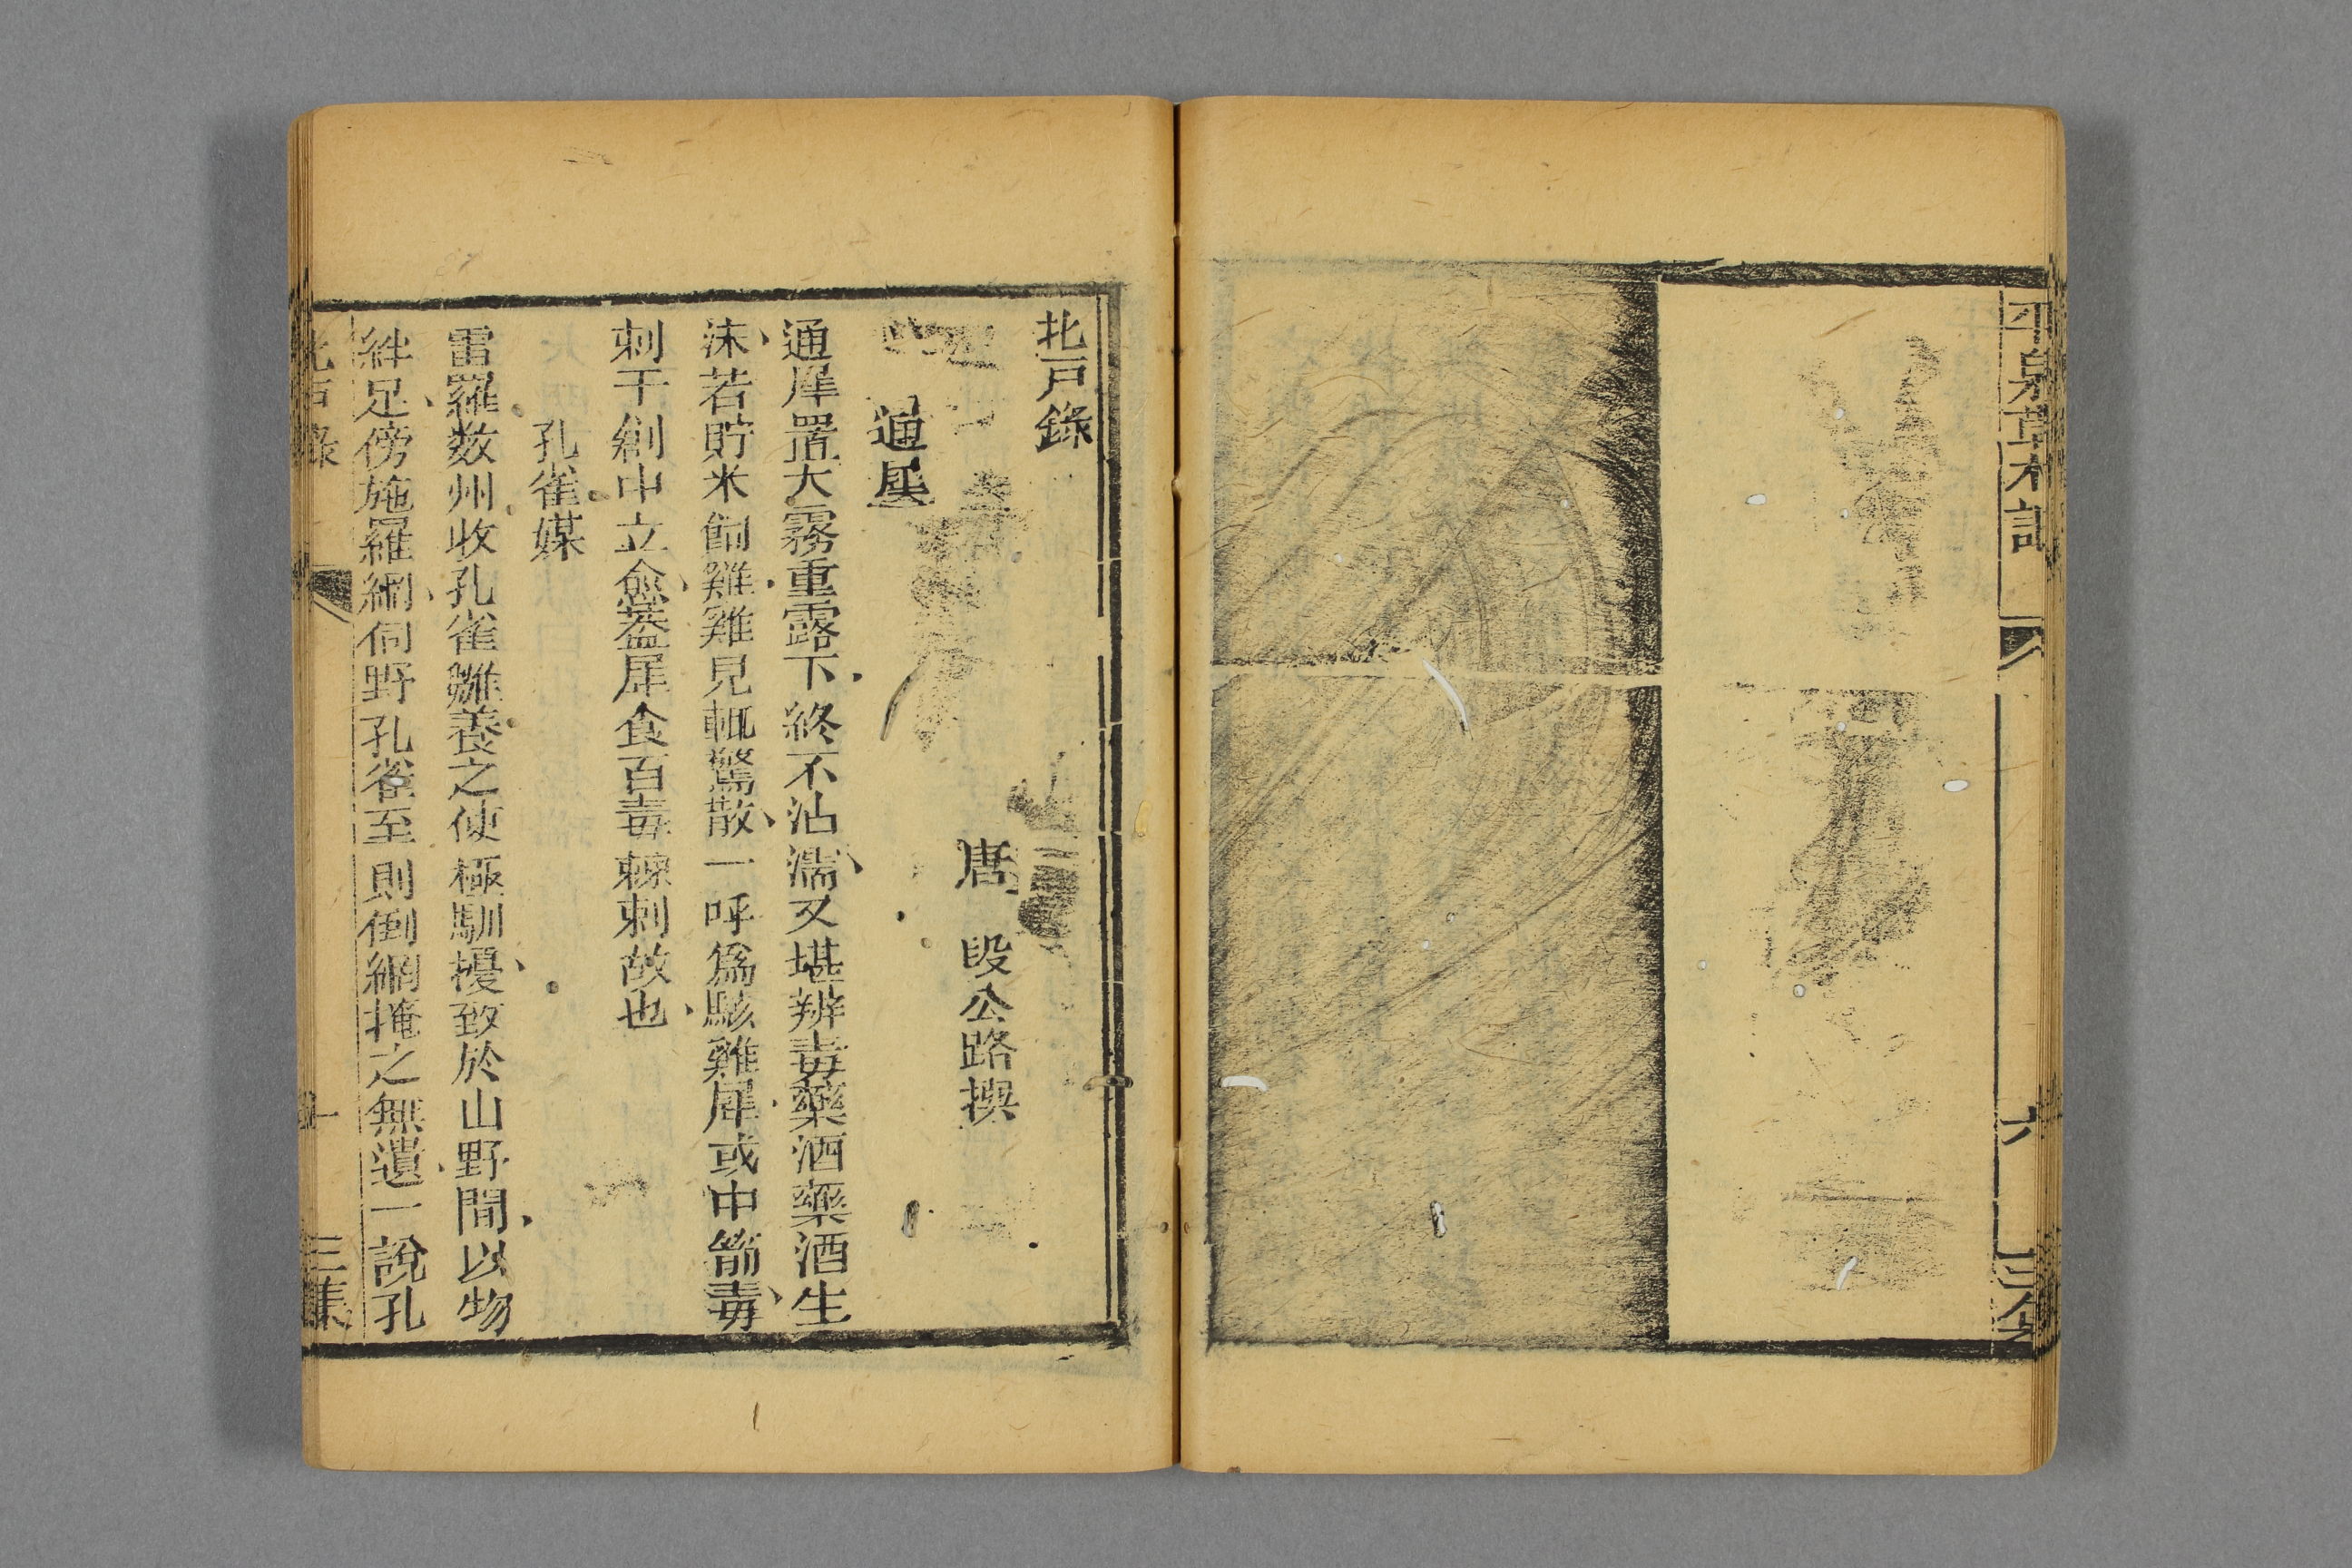 平泉草木記
六
北戸錄
唐 段公路撰
通犀
通犀置大霧重露下終不沾濡又堪辨毒藥酒藥酒生
沫若貯米飼雞雞見輒驚散一呼爲駭雞犀或中箭毒
刺于創中立愈蓋犀食百毒棘刺故也
孔雀媒
雷羅数州收孔雀雛養之使極馴擾致於山野間以物
絆足傍施羅網伺野孔雀至則倒網掩之無遺一說孔
北戸錄
三集